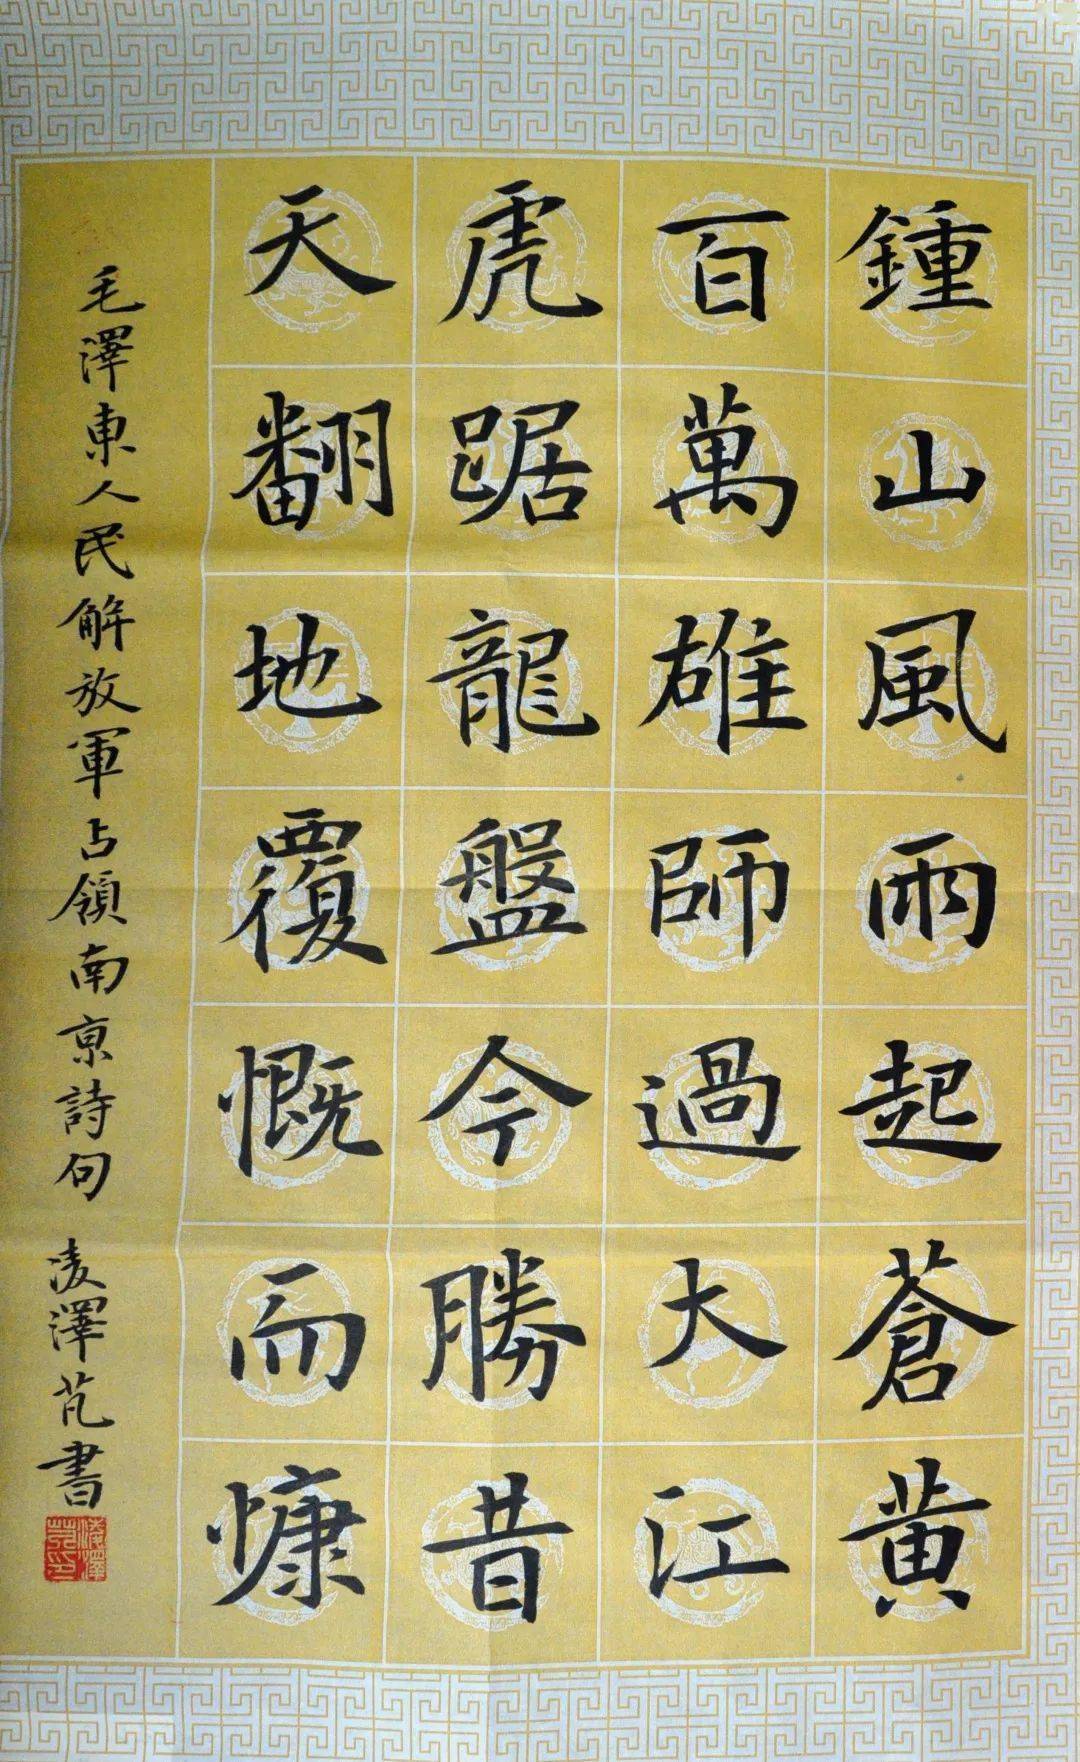 鍾山風雨起蒼黄
百萬雄師過大江
虎踞龍盤今勝昔
天翻地覆慨而慷
毛澤東人民解放軍占領南京詩句 淩澤芃書
淩澤芃印